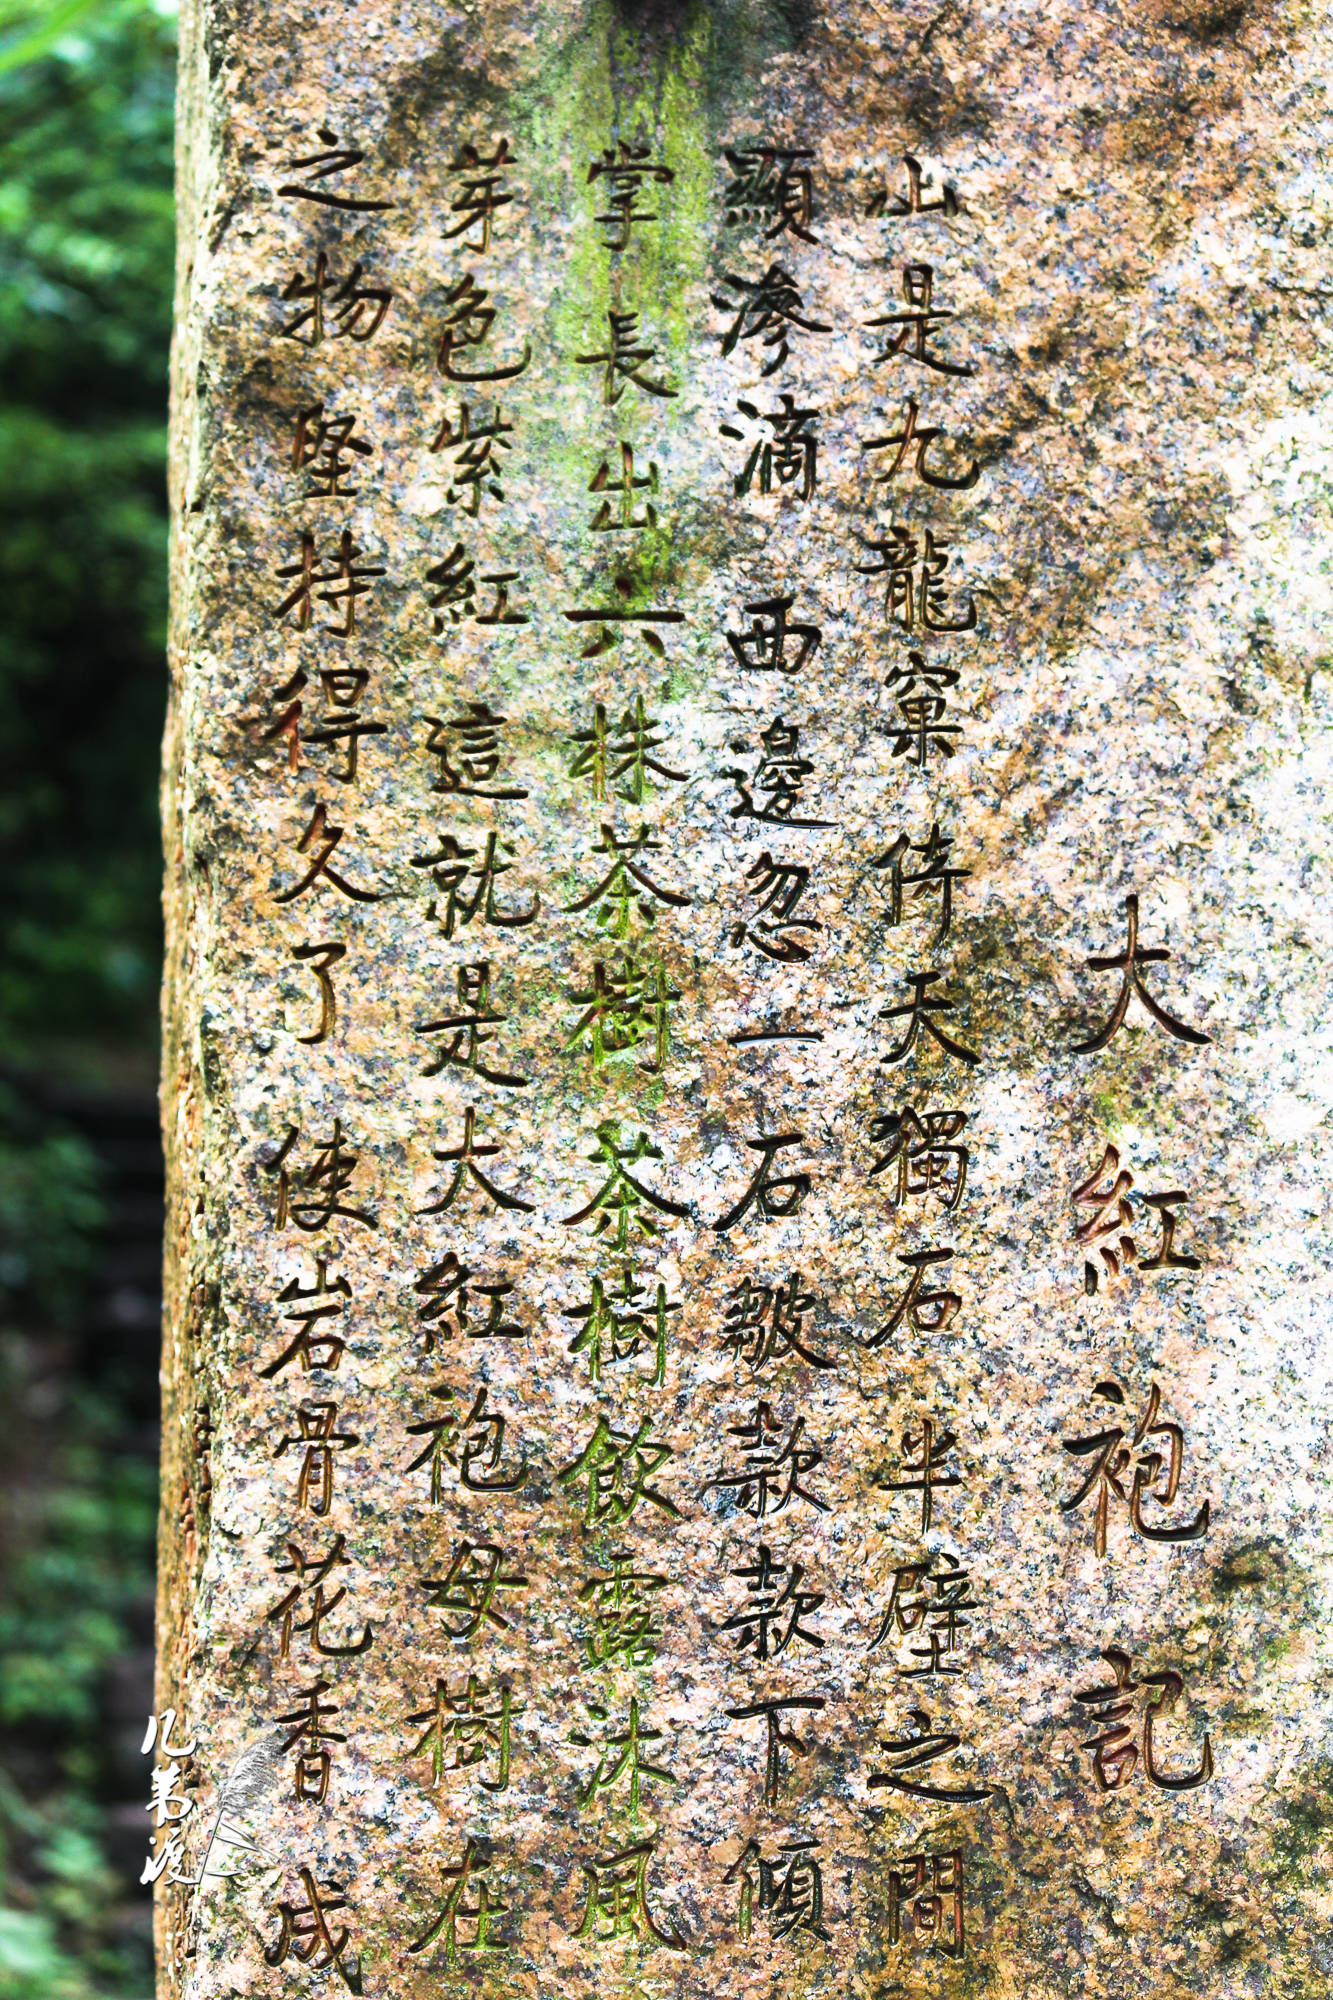 大紅袍記
山是九龍窠倚天獨石半壁之間
顯滲滴西邊忽一石皺款款下傾
掌長出六株茶樹茶樹飲露沐風
芽色紫紅這就是大紅袍母樹在
之物堅持得久了使岩骨花香成